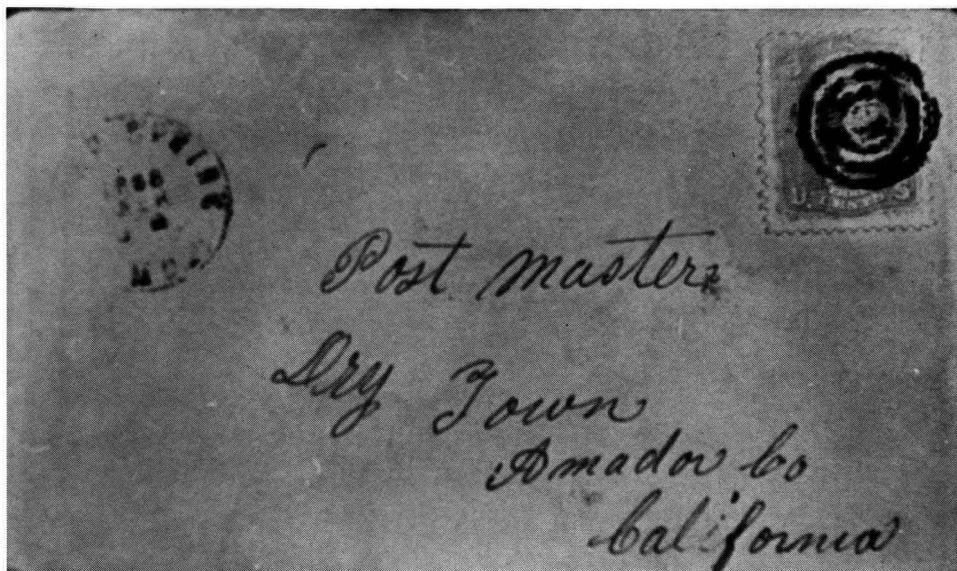 Post Master
Dry Town
Amador Co
California